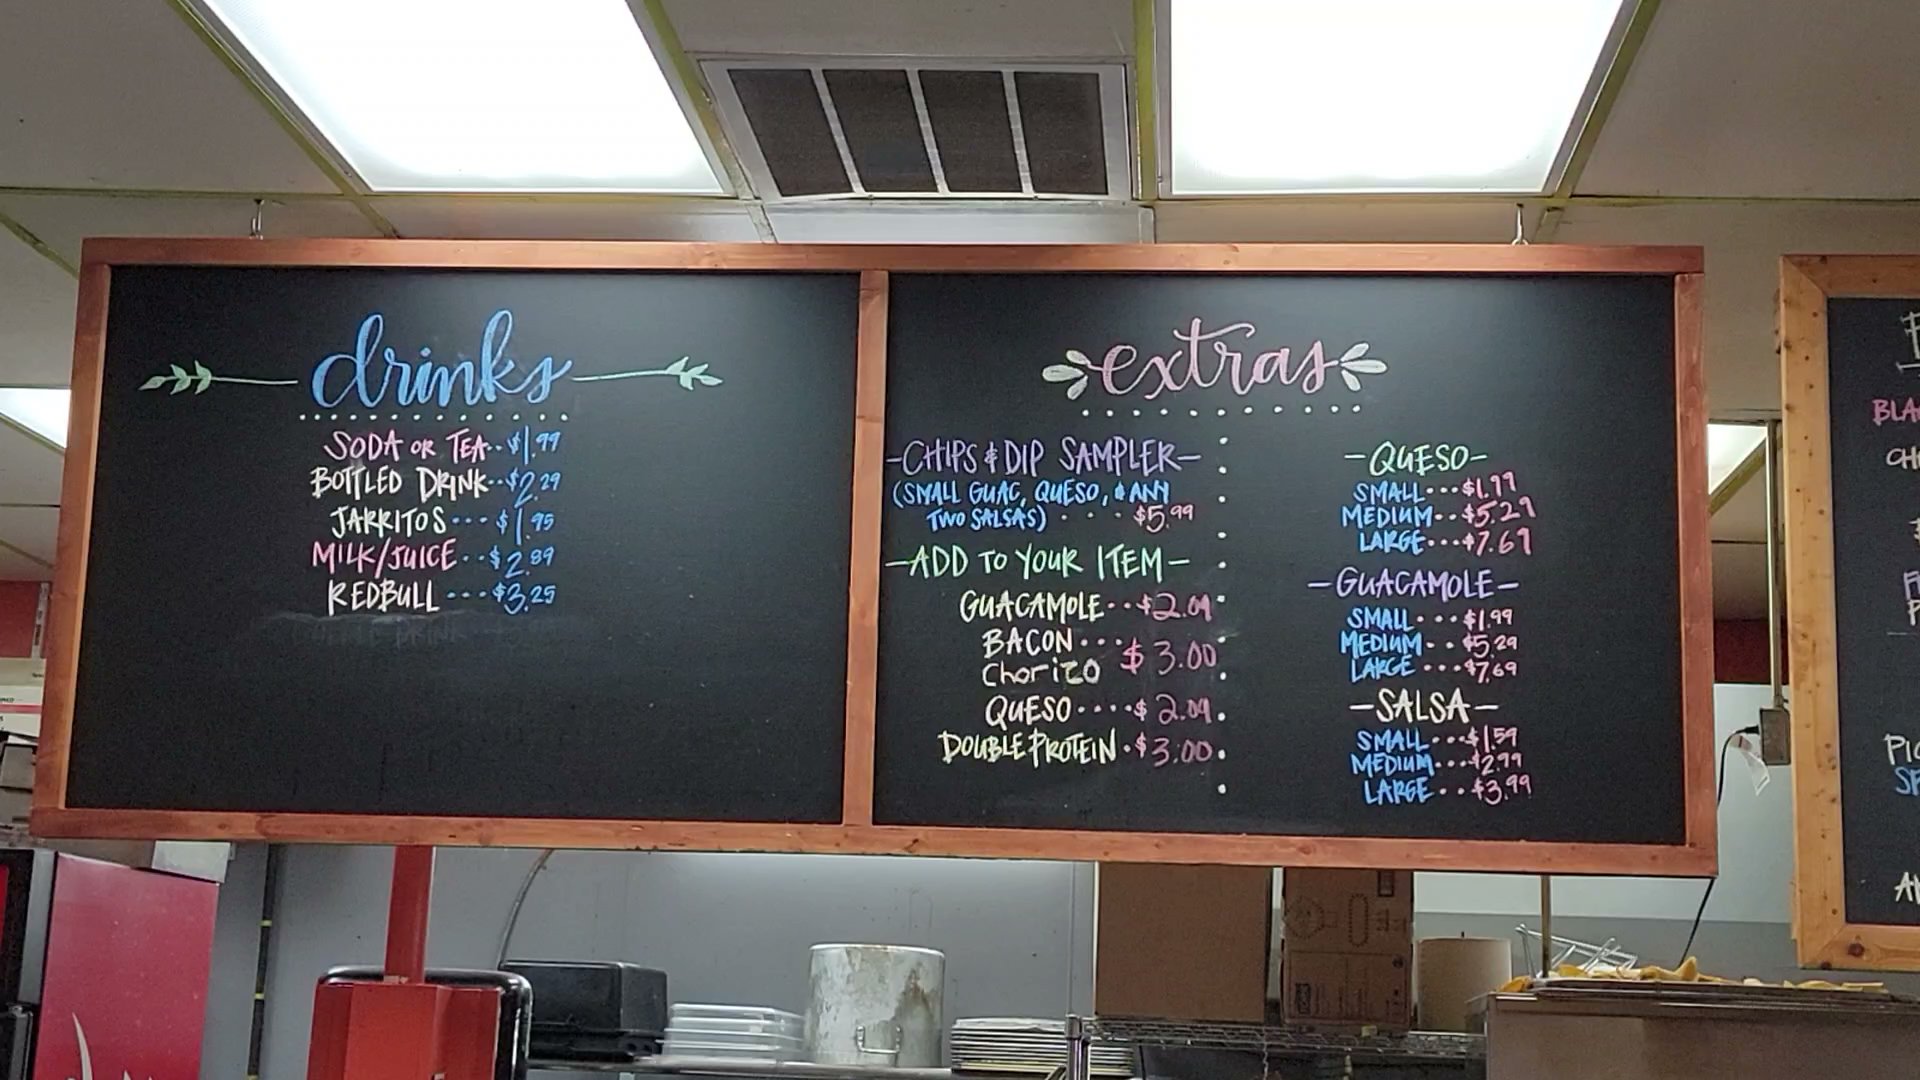 drinks
SODA OR TEA..$1.99
BOTTLED DRINK..$2.29
JARRITOS...$1.95
MILK/JUICE..$2.89
REDBULL...$3.25
extras
-CHIPS & DIP SAMPLER-
(SMALL GUAC, QUESO, & ANY
TWO SALSAS)...$5.99
-ADD TO YOUR ITEM-
GUACAMOLE..$2.09
BACON...
Chorizo $3.00
QUESO....$2.09
DOUBLE PROTEIN.$3.00
-QUESO-
SMALL...$1.99
MEDIUM..$5.29
LARGE...$7.69
-GUACAMOLE-
SMALL...$1.99
MEDIUM..$5.29
LARGE...$7.69
-SALSA-
SMALL...$1.59
MEDIUM...$2.99
LARGE...$3.99